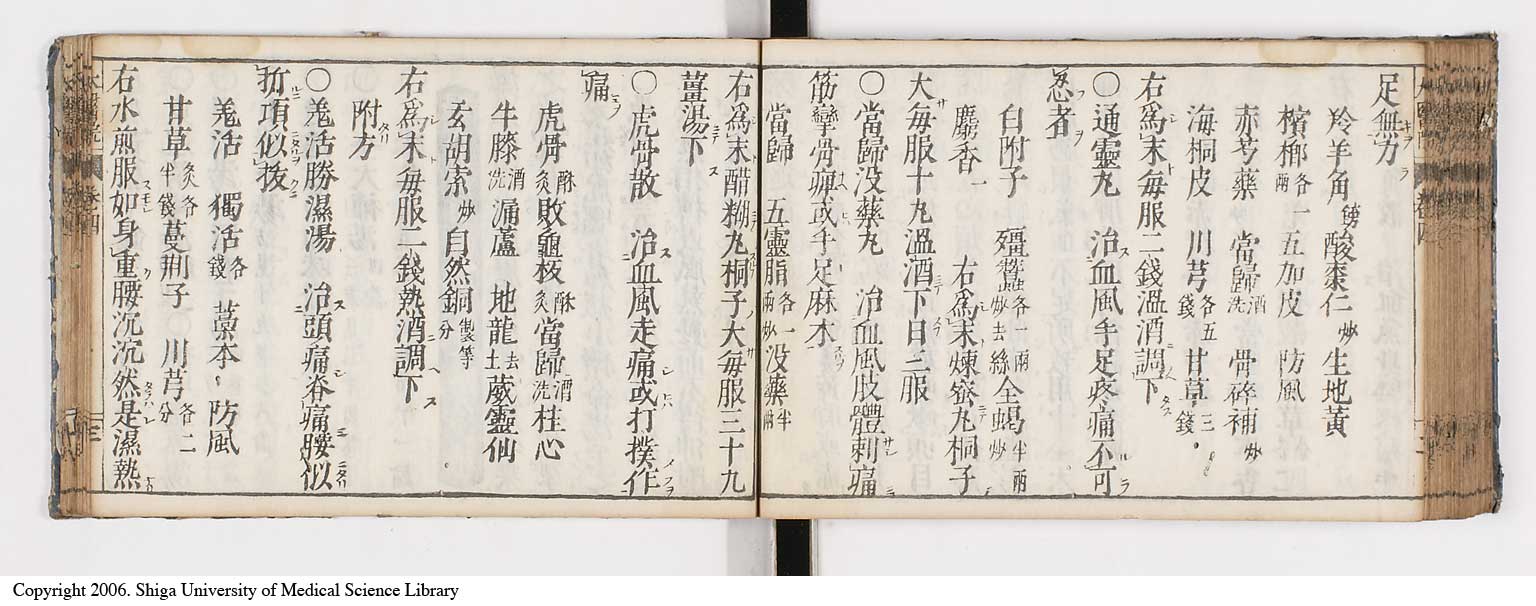 足無力
羚羊角鎊酸棗仁炒生地黃
檳榔各一兩五加皮 防風
赤芍藥 當歸酒洗 骨碎補炒
海桐皮 川芎各五錢甘草三錢
右爲末每服二錢溫酒調下
○通靈丸 治血風手足疼痛不可
忍者
白附子 殭蠶各一兩炒去絲全蝎半兩炒
麝香一 右爲末煉蜜丸桐子
大每服十丸溫酒下日三服
○當歸没藥丸 治血風肢體刺痛
筋攣骨痺或手足麻木
當歸 五靈脂各一兩炒没藥半兩
右爲末醋糊丸桐子大每服三十丸
薑湯下
○虎骨散 治血風走痛或打撲作
痛
虎骨酥炙敗龜板酥炙當歸酒洗桂心
牛膝酒洗漏蘆 地龍去土葳靈仙
玄胡索炒自然銅製等分
右爲末每服二錢熱酒調下
附方
○羗活勝濕湯 治頭痛脊痛腰似
折項似拔
羗活 獨活各錢 藁本 防風
甘草炙各半錢蔓荊子 川芎各二分
右水煎服如身重腰沉沉然是濕熱
Copyright 2006. Shiga University of Medical Science Library